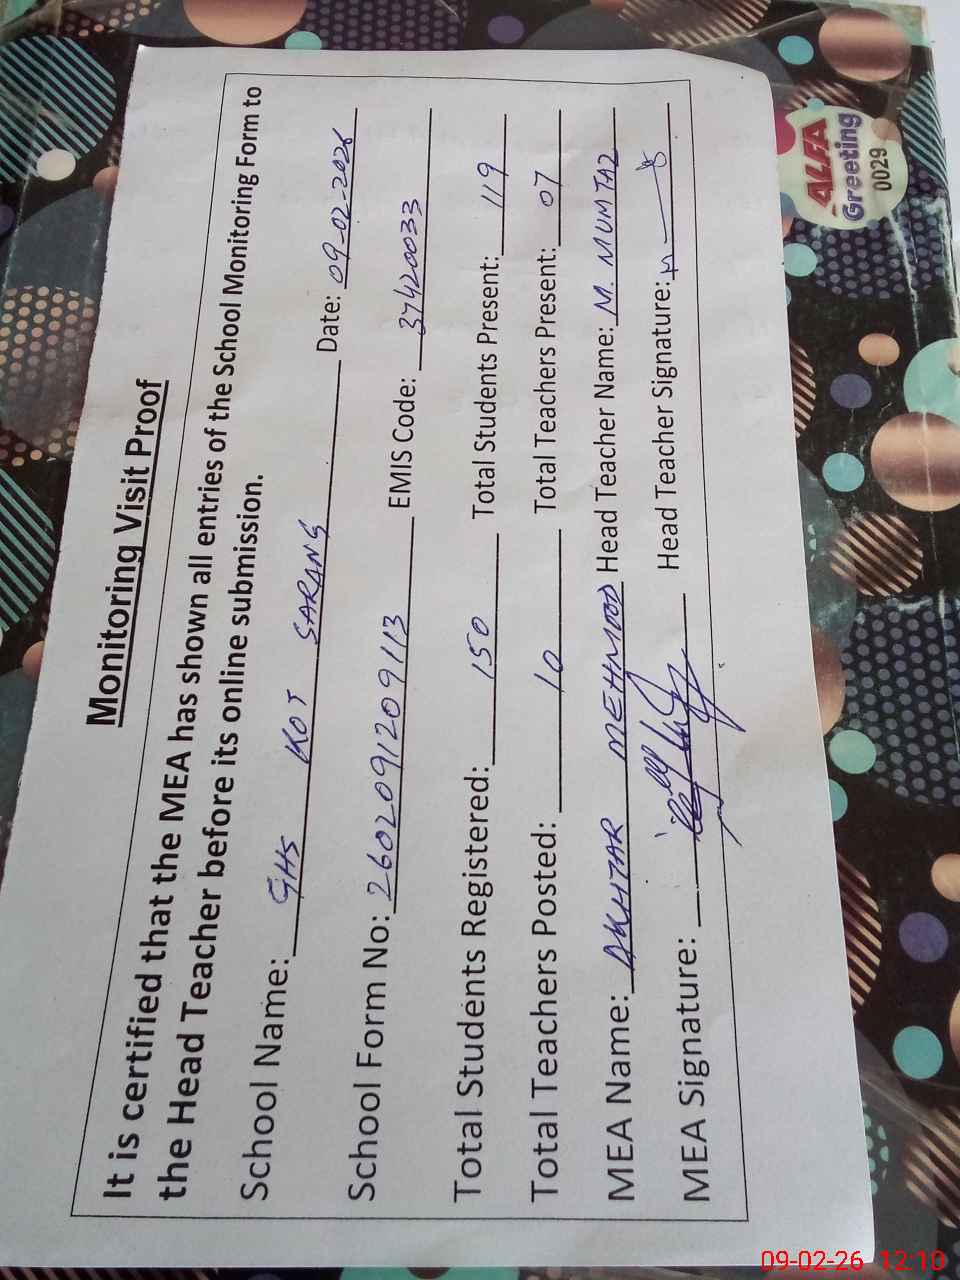 Monitoring Visit Proof
It is certified that the MEA has shown all entries of the School Monitoring Form to
the Head Teacher before its online submission.
School Name: GHS KOT SARANG Date: 09-02-2026
School Form No: 2602091209113 EMIS Code: 37420033
Total Students Registered: 150 Total Students Present: 119
Total Teachers Posted: 10 Total Teachers Present: 07
MEA Name: AKHTAR MEHMOOD Head Teacher Name: M. MUMTAZ
MEA Signature: Head Teacher Signature:
ALFA
Greeting
0029
09-02-26 12:10